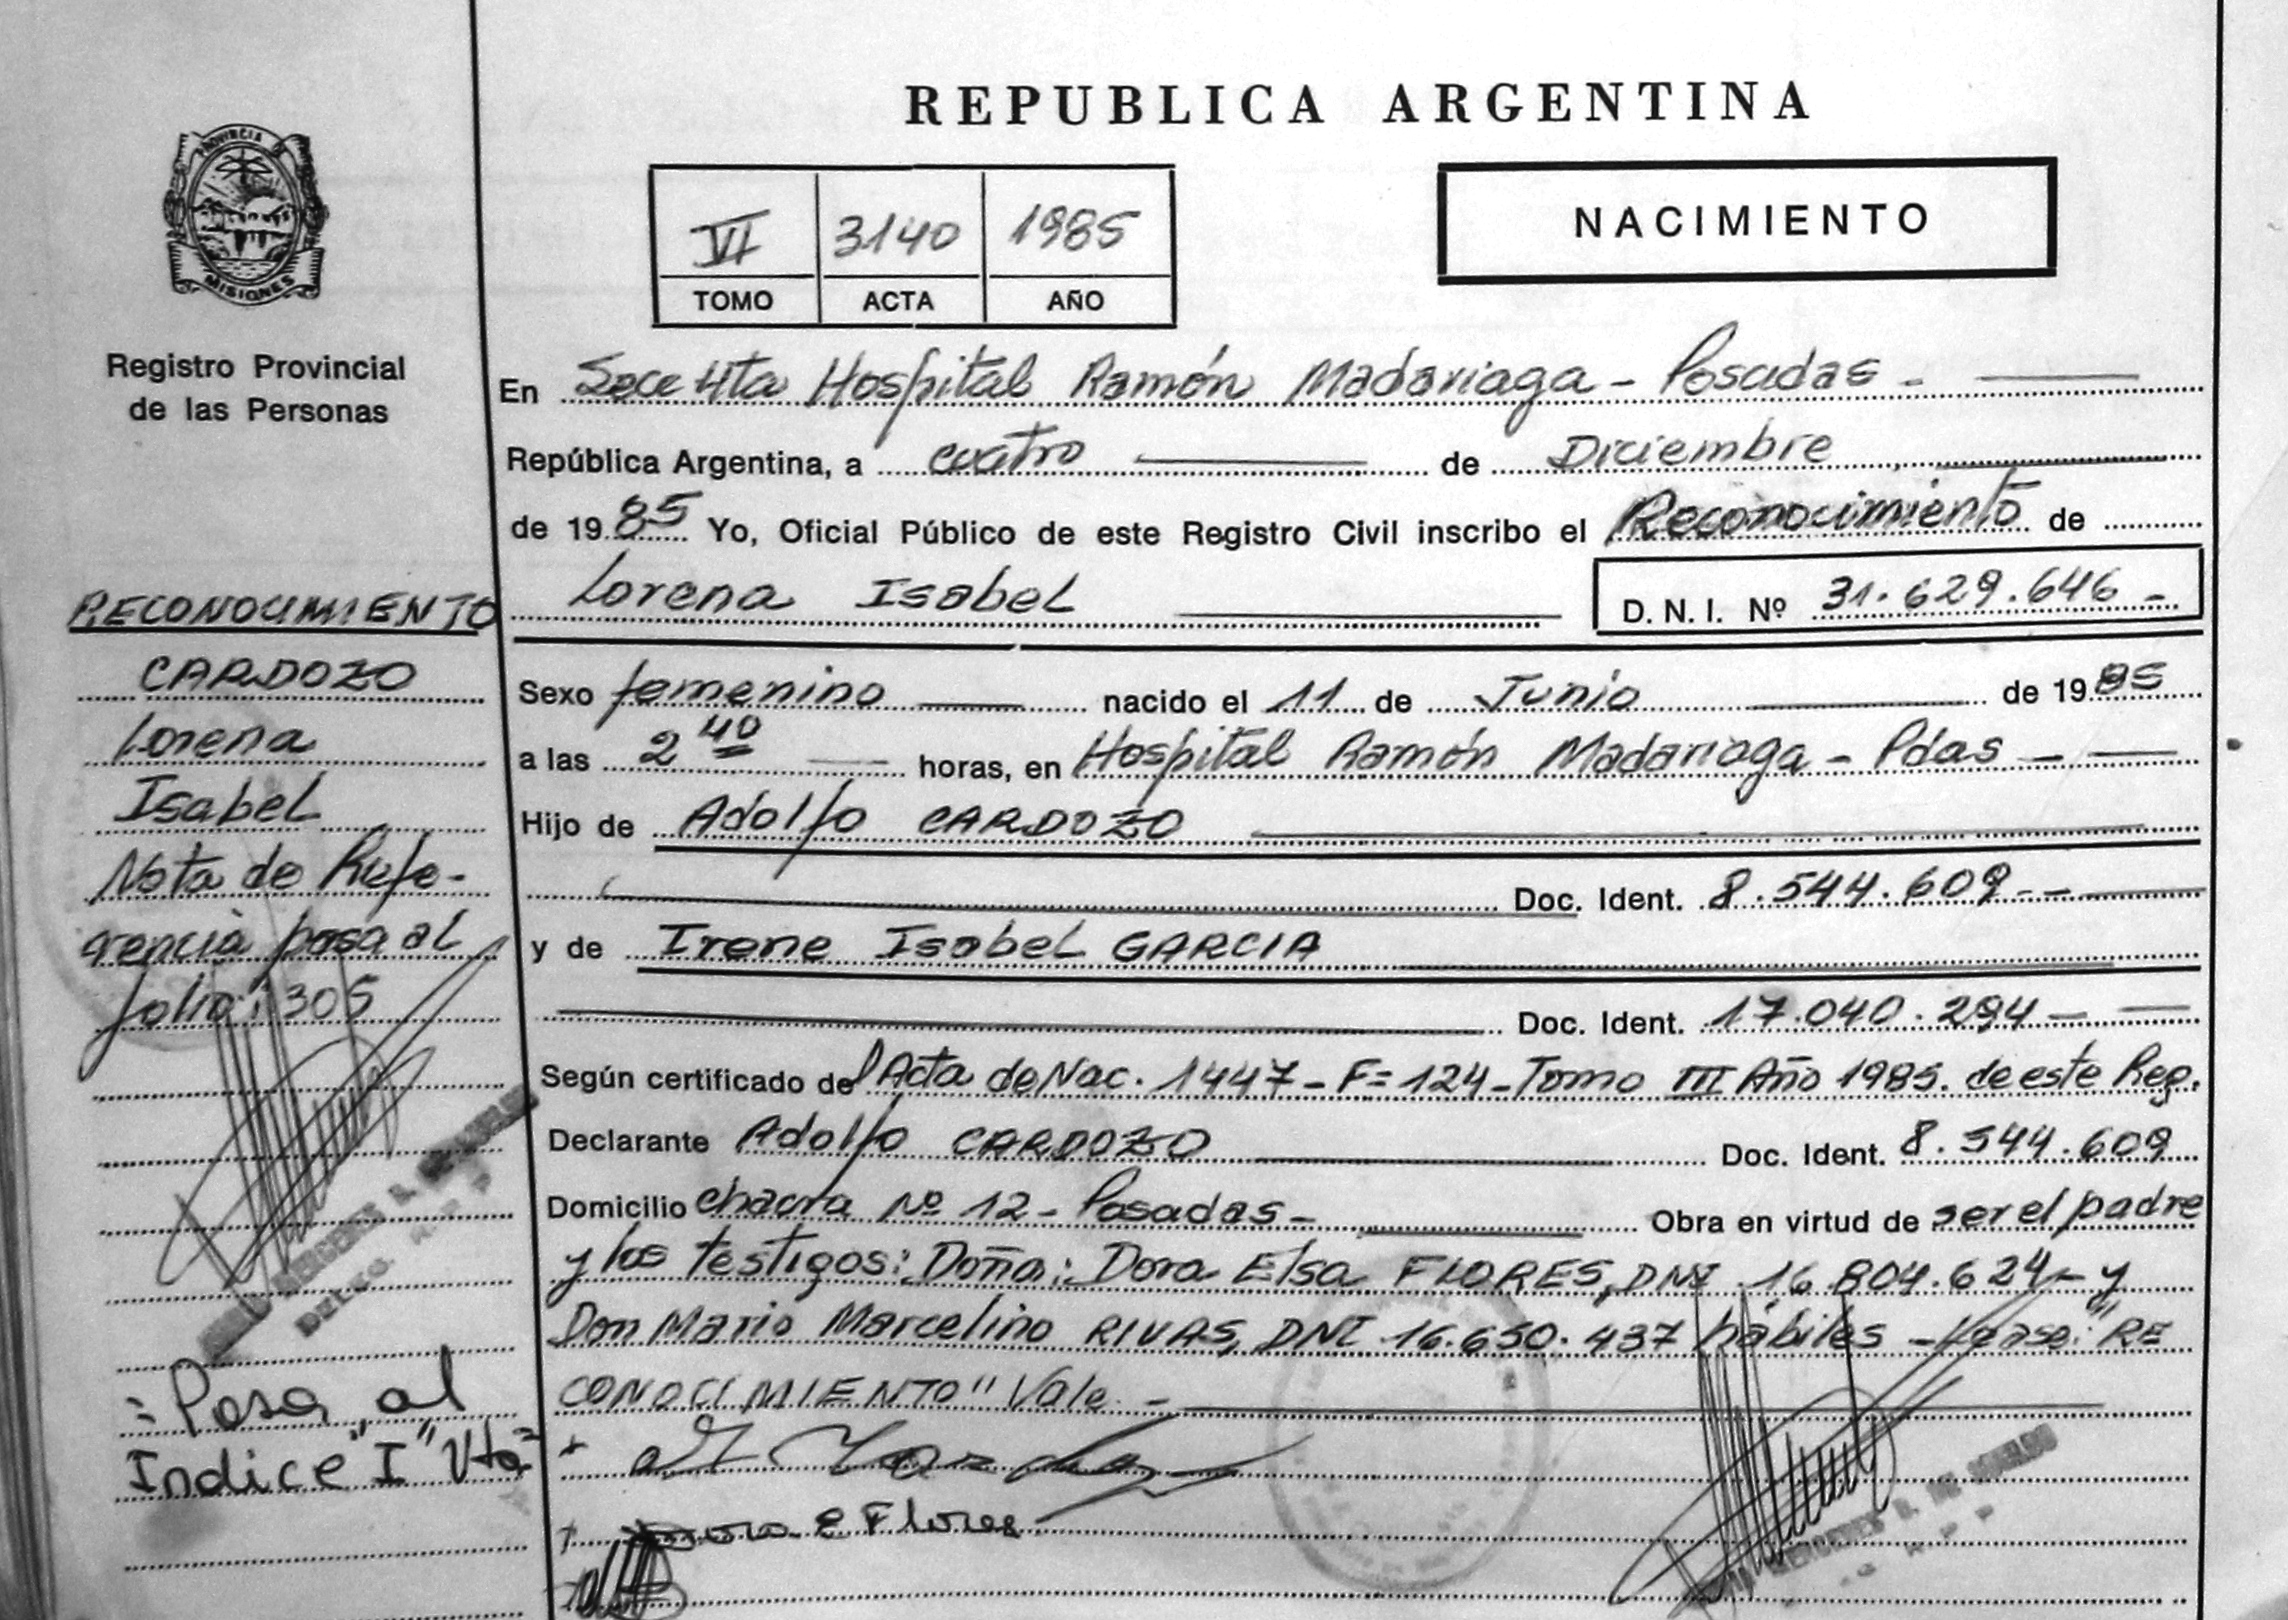 REPUBLICA ARGENTINA
PROVINCIA DE
MISIONES
Registro Provincial
de las Personas
VI 3140 1985
TOMO ACTA AÑO
NACIMIENTO
En Secc 4ta Hospital Ramón Madariaga - Posadas -
República Argentina, a cuatro de Diciembre
de 1985 Yo, Oficial Público de este Registro Civil inscribo el Reconocimiento de
Lorena Isabel D. N. I. Nº 31.629.646 -
Sexo femenino nacido el 11 de Junio de 1985
a las 2 40 horas, en Hospital Ramón Madariaga - Pdas -
Hijo de Adolfo CARDOZO
Doc. Ident. 8.544.609 - -
y de Irene Isabel GARCIA
Doc. Ident. 17.040.294 -
Según certificado del Acta de Nac. 1447 - F= 124 - Tomo III Año 1985. de este Reg.
Declarante Adolfo CARDOZO Doc. Ident. 8.544.609
Domicilio chacra Nº 12 - Posadas - Obra en virtud de ser el padre
y los testigos: Doña: Dora Elsa FLORES, DNI 16.804.624 - y
Don Mario Marcelino RIVAS, DNI 16.650.437 hábiles - Lease: "RE
CONOCIMIENTO" Vale. -
Dora E Flores
RECONOCIMIENTO
CARDOZO
Lorena
Isabel
Nota de Refe-
rencia pasa al
folio: 305
= Pasa al
Indice "I" Vta =